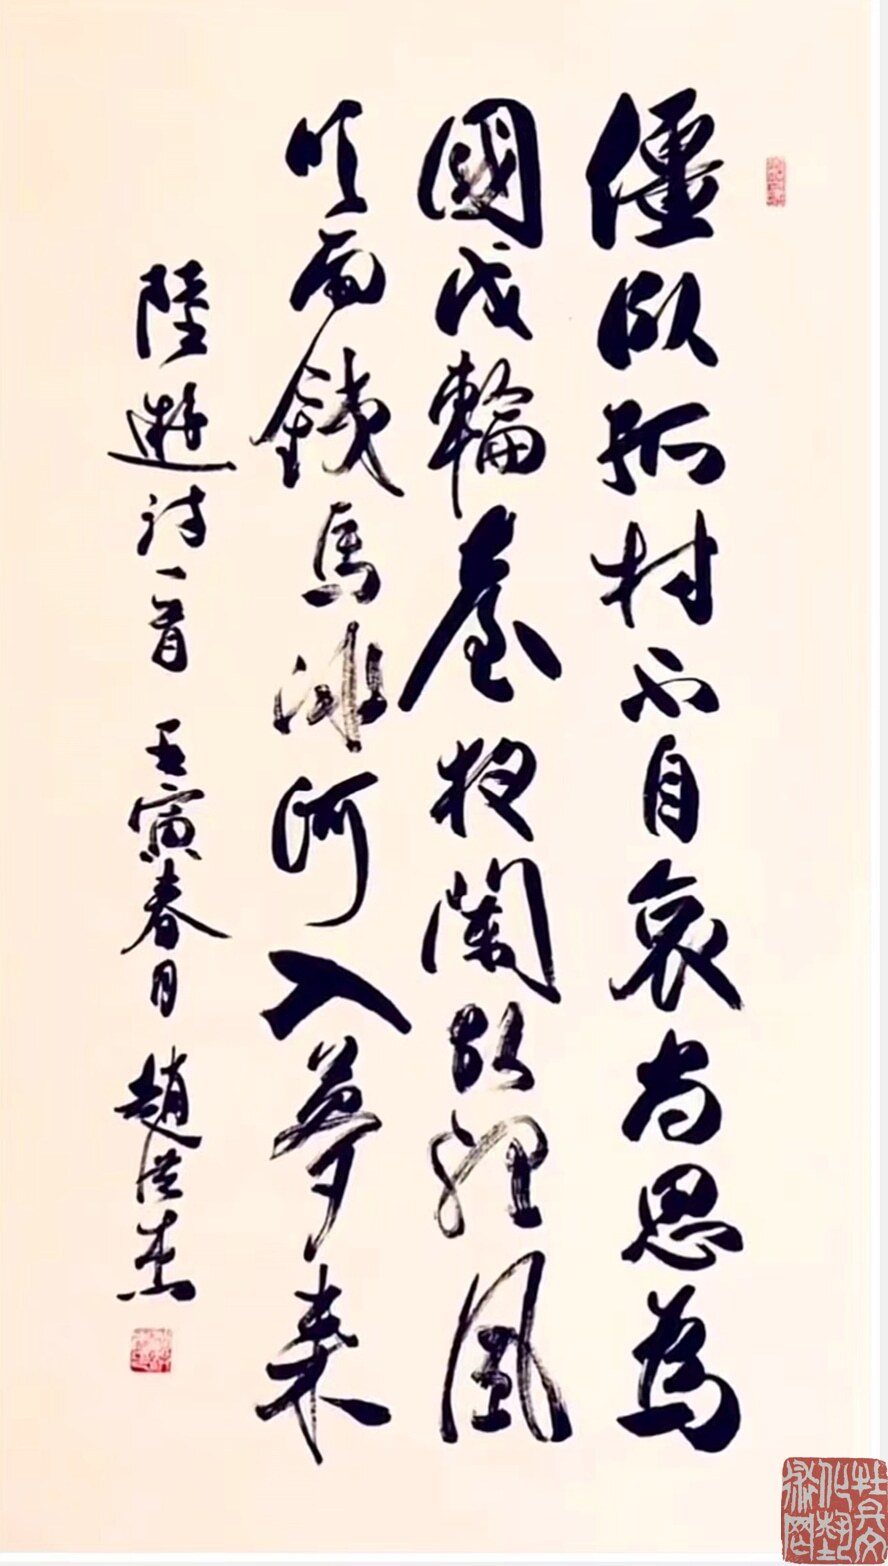 僵臥孤村不自哀尚思為
國戍輪臺夜闌臥聽風
吹雨鐵馬冰河入夢來
陸遊詩一首 壬寅春月 趙洪杰
牡丹文化藝術网